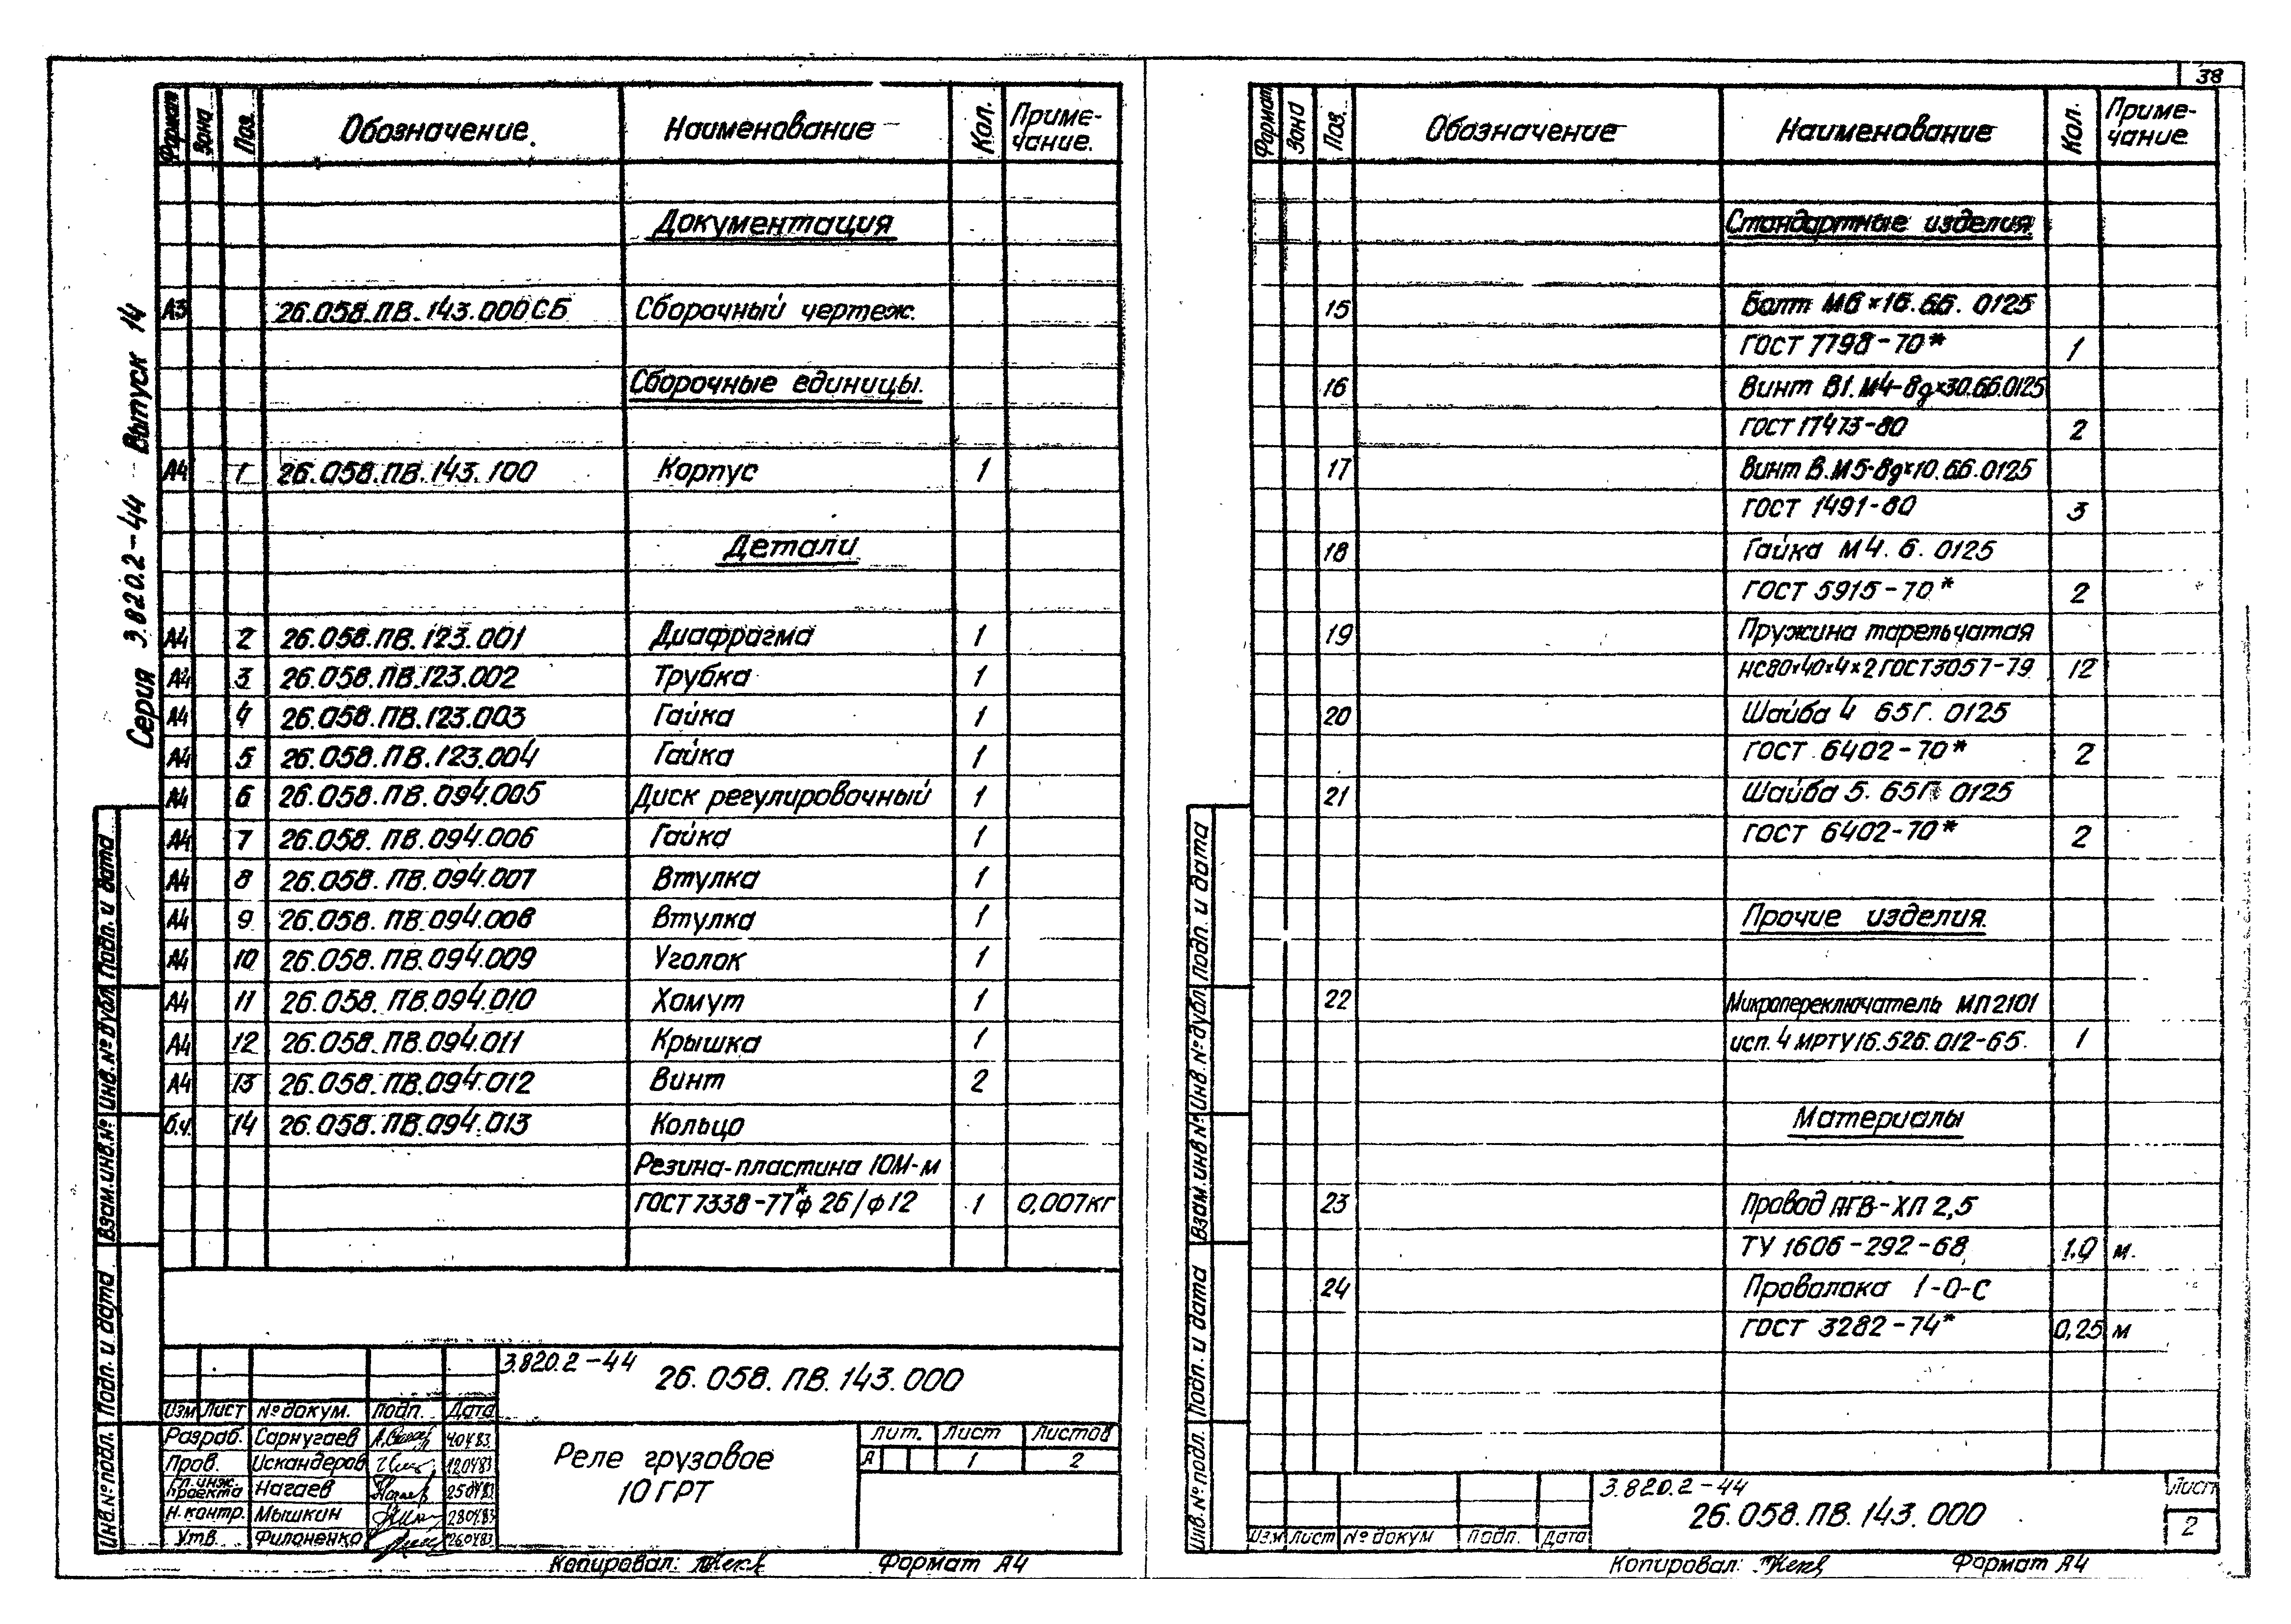 38
Серия 3.820.2-44 Выпуск 14
Формат Зона Поз. Обозначение. Наименование Кол. Приме-
чание.
Документация
А3 26.058.ПВ.143.000СБ Сборочный чертеж.
Сборочные единицы.
А4 1 26.058.ПВ.143.100 Корпус 1
Детали
А4 2 26.058.ПВ.123.001 Диафрагма 1
А4 3 26.058.ПВ.123.002 Трубка 1
А4 4 26.058.ПВ.123.003 Гайка 1
А4 5 26.058.ПВ.123.004 Гайка 1
А4 6 26.058.ПВ.094.005 Диск регулировочный 1
А4 7 26.058.ПВ.094.006 Гайка 1
А4 8 26.058.ПВ.094.007 Втулка 1
А4 9 26.058.ПВ.094.008 Втулка 1
А4 10 26.058.ПВ.094.009 Уголок 1
А4 11 26.058.ПВ.094.010 Хомут 1
А4 12 26.058.ПВ.094.011 Крышка 1
А4 13 26.058.ПВ.094.012 Винт 2
б.ч. 14 26.058.ПВ.094.013 Кольцо
Резина-пластина 10М-м
ГОСТ 7338-77* ф 26/ф12 1 0,007кг
Инв.№подл. Подп. и дата Взам.инв.№ Инв.№дубл. Подп. и дата
3.820.2-44
26.058.ПВ.143.000
Изм Лист №докум. Подп. Дата
Разраб. Сарнугаев 4.04.83.
Пров. Искандеров 12.04.83
Гл. инж.
проекта Нагаев 25.04.83
Н.контр. Мышкин 28.04.83
Утв. Филоненко 26.04.83
Реле грузовое
10ГРТ
Лит. Лист Листов
А 1 2
Копировал: Формат А4
Формат Зона Поз. Обозначение Наименование Кол. Приме-
чание
Стандартные изделия
15 Болт М6×16.66.0125
ГОСТ 7798-70* 1
16 Винт В1.М4-8g×30.66.0125
ГОСТ 17473-80 2
17 Винт В.М5-8g×10.66.0125
ГОСТ 1491-80 3
18 Гайка М4.6.0125
ГОСТ 5915-70* 2
19 Пружина тарельчатая
НС80×40×4×2 ГОСТ3057-79 12
20 Шайба 4 65Г.0125
ГОСТ 6402-70* 2
21 Шайба 5.65Г 0125
ГОСТ 6402-70* 2
Прочие изделия.
22 Микропереключатель МП2101
исп.4 МРТУ16.526.012-65. 1
Материалы
23 Провод ПГВ-ХЛ 2,5
ТУ 1606-292-68 1.0 м.
24 Проволока 1-О-С
ГОСТ 3282-74* 0,25 м
Инв.№подл. Подп. и дата Взам.инв№ Инв.№дубл. Подп. и дата
3.820.2-44
26.058.ПВ.143.000
Изм Лист №докум Подп. Дата
Лист
2
Копировал: Формат А4